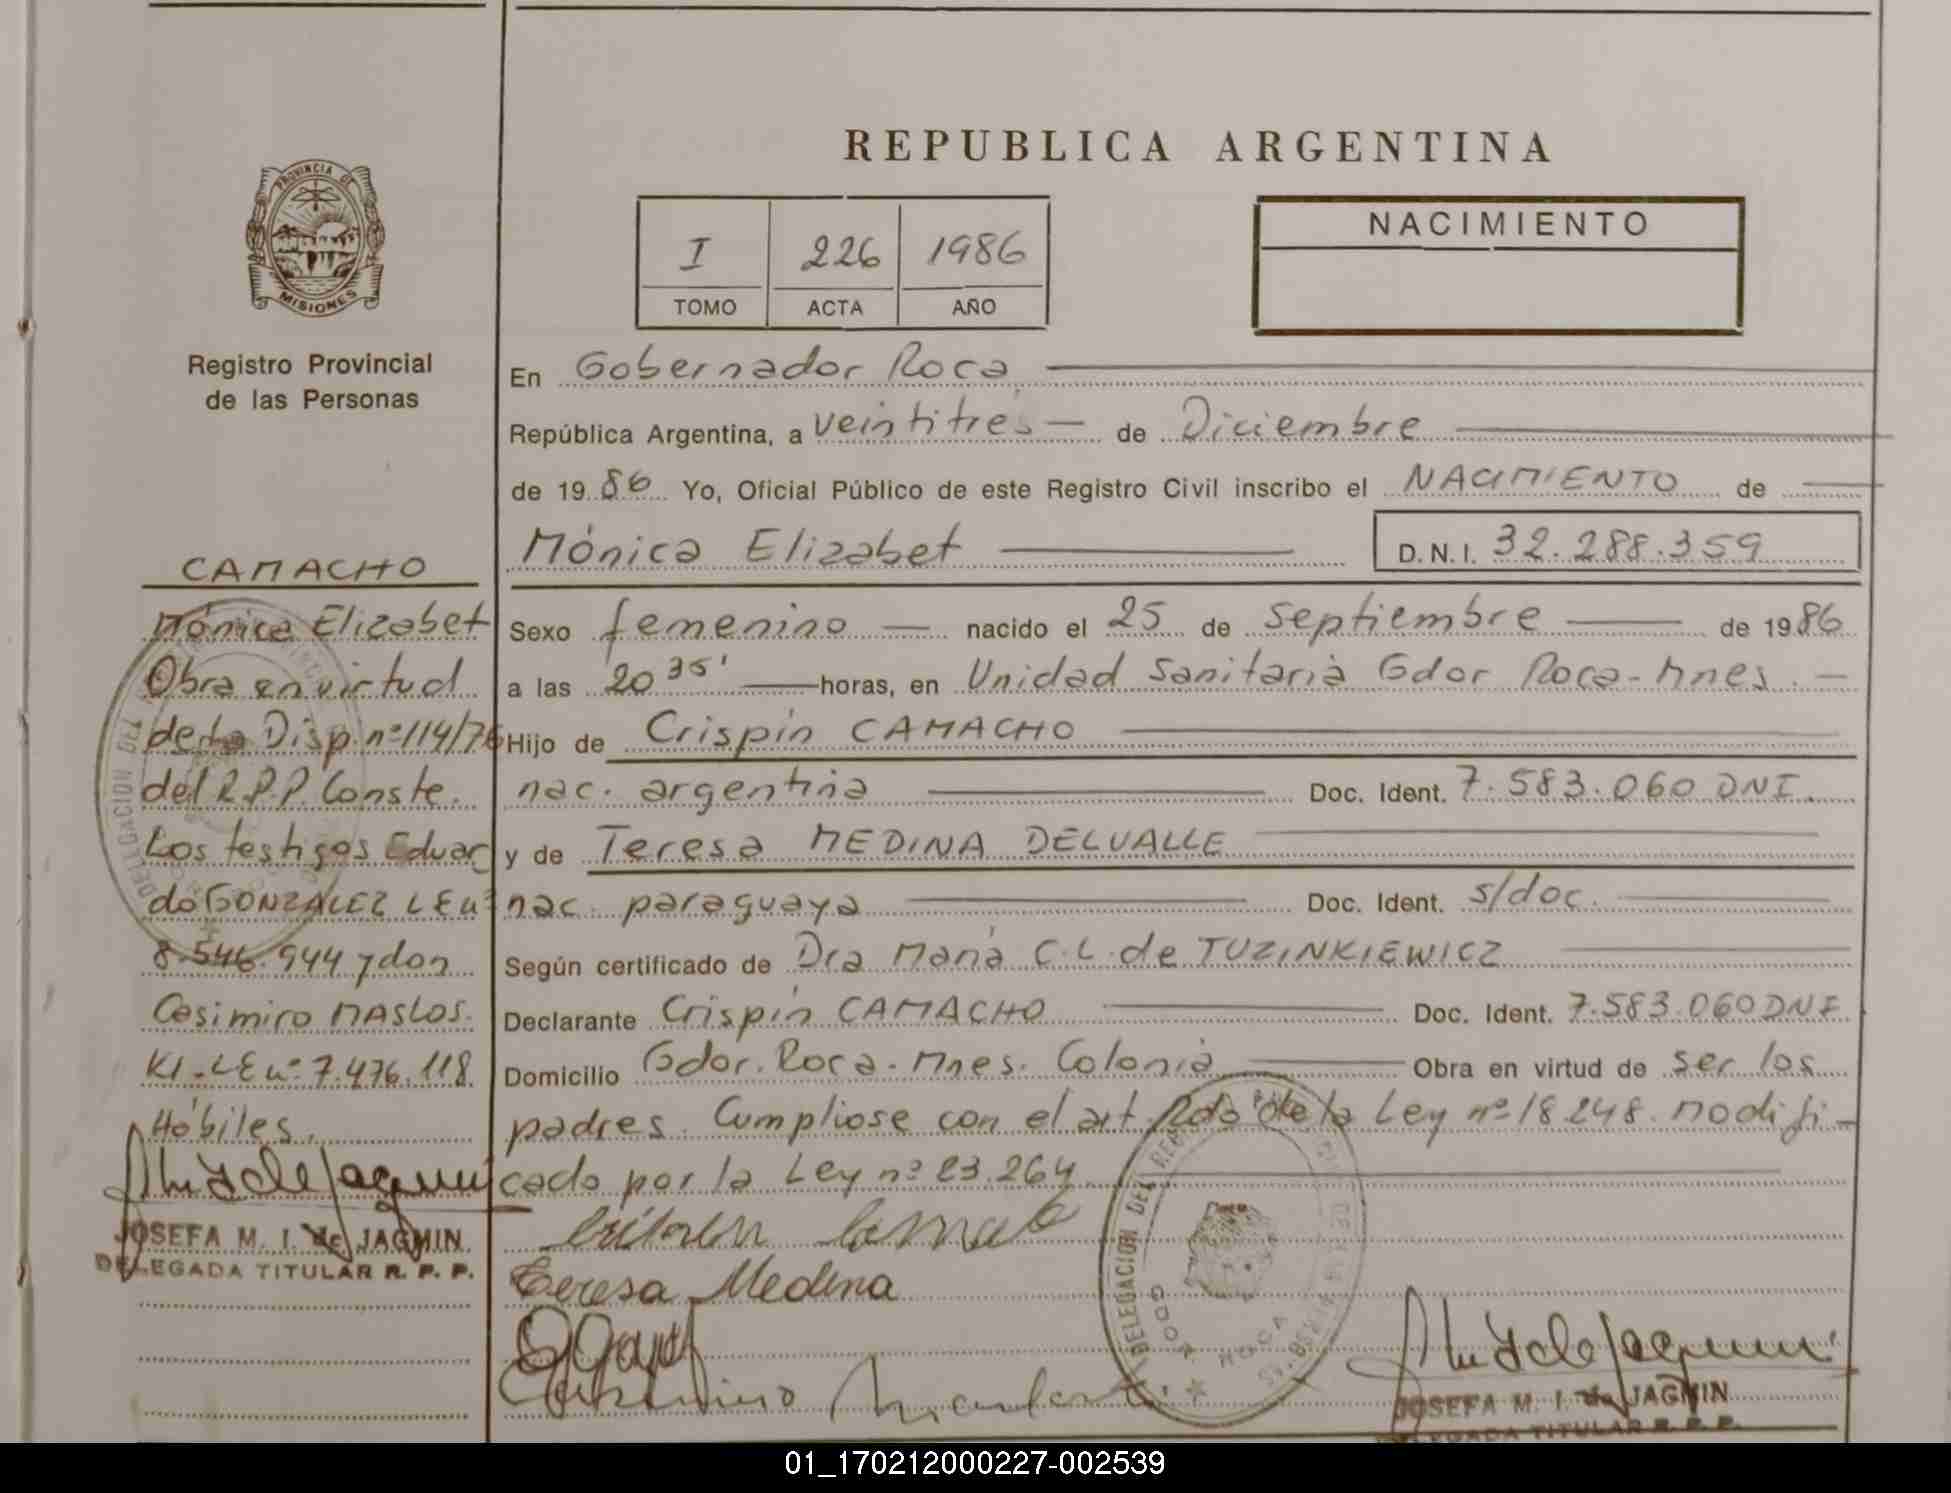 REPUBLICA ARGENTINA
PROVINCIA DE
MISIONES
Registro Provincial
de las Personas
I 226 1986
TOMO ACTA AÑO
NACIMIENTO
CAMACHO
Mónica Elizabet
Obra en virtud
de la Disp. nº 114/76
del R.P.P. Conste.
Los testigos Eduar
do GONZALEZ LE nº
8.546.944 y don
Casimiro MASLOS.
KI-LE nº 7.476.118
Hábiles.
JOSEFA M. I. de JAGMIN
DELEGADA TITULAR R. P. P.
En Gobernador Roca
República Argentina, a veintitrés de Diciembre
de 1986 Yo, Oficial Público de este Registro Civil inscribo el NACIMIENTO de
Mónica Elizabet D.N.I. 32.288.359
Sexo femenino nacido el 25 de septiembre de 1986
a las 20 35' horas, en Unidad Sanitaria Gdor Roca-Mnes.
Hijo de Crispín CAMACHO
nac. argentina Doc. Ident. 7.583.060 DNI.
y de Teresa MEDINA DELVALLE
nac. paraguaya Doc. Ident. s/doc.
Según certificado de Dra María C.L. de TUZINKIEWICZ
Declarante Crispín CAMACHO Doc. Ident. 7.583.060 DNI
Domicilio Gdor. Roca-Mnes. Colonia Obra en virtud de ser los
padres. Cumpliose con el art. 2do de la Ley nº 18.248. modifi-
cado por la Ley nº 23.264
Teresa Medina
DELEGACION DEL
GDOR. ROCA
JOSEFA M. I. de JAGMIN
DELEGADA TITULAR R. P. P.
01_170212000227-002539